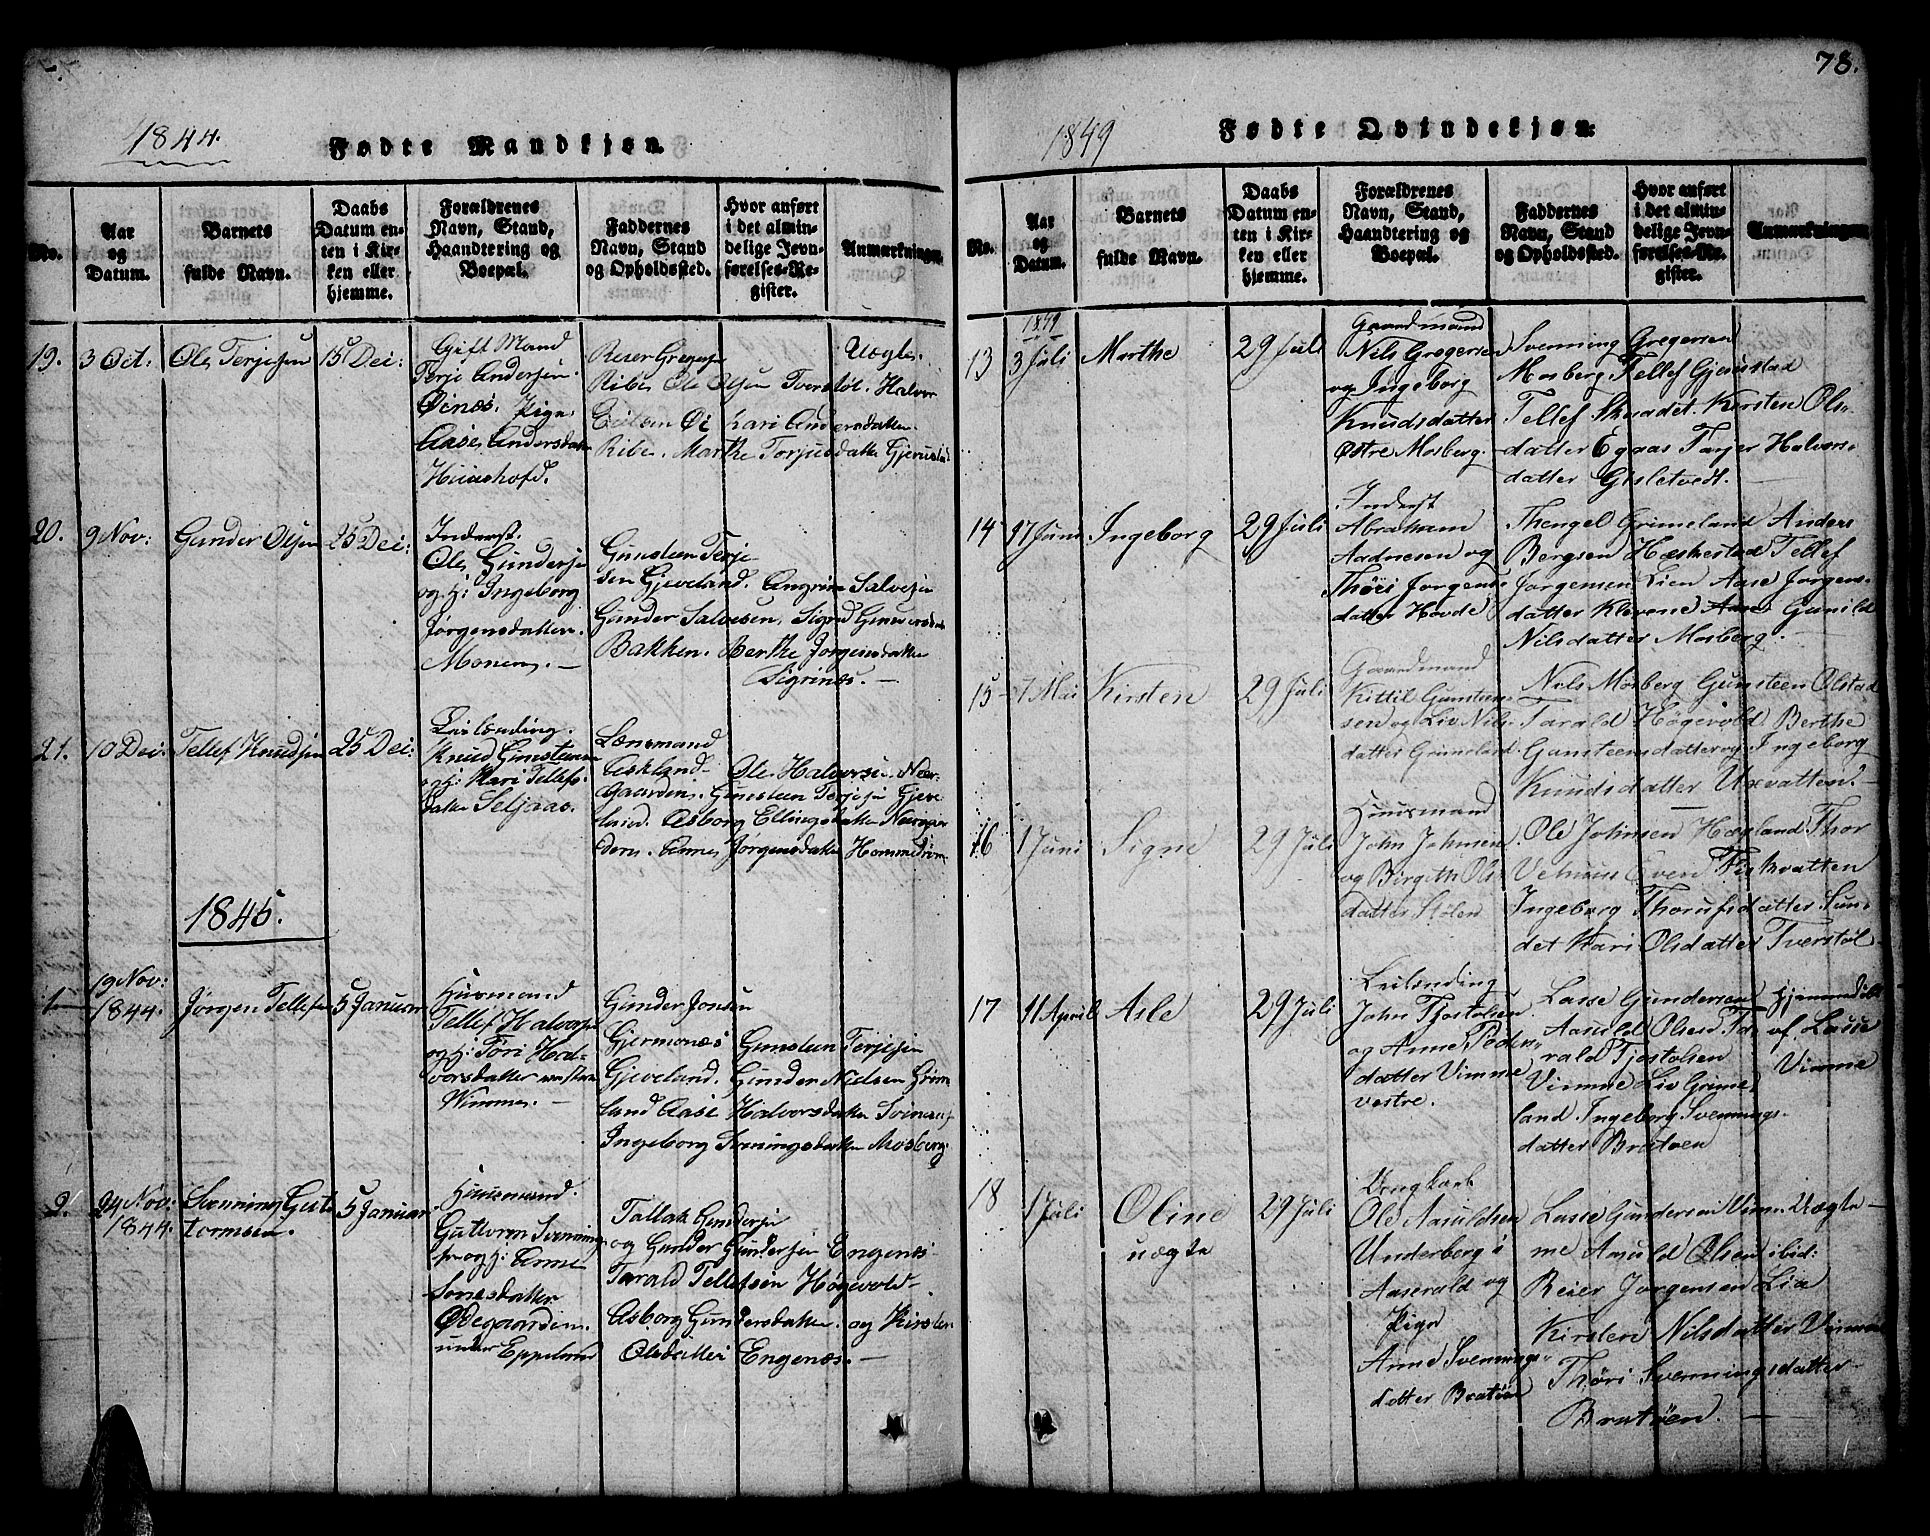 78.
1844.
Fødte Mandkjøn.
No.
Aar og Datum.
Barnets fulde Navn.
Daabs Datum enten i Kirken eller hjemme.
Forældrenes Navn, Stand, Haandtering og Boepæl.
Faddernes Navn, Stand og Opholdssted.
Hvor anført i det almindelige Jevnførelses-Register.
Anmærkninger.
19.
3 Oct:
Ole Terjesen
15 Dec:
Gift Mand
Terje Andersen
Øinæs. Pige
Aase Andersdatter
Reier Gregersen
Ribe, Ole Olsen Tverstøl. Halvor
Øi Kari Andersdatter
Ribe. Marthe Torjusdatter Gjerustad
Uægte
20.
9 Nov:
Gunder Olsen
25 Dec:
Inderst.
Ole Gundersen
og h: Ingeborg
Jørgensdatter
Monen. —
Gunsteen Terje-
sen Gjeveland. Salvesen
Gunder Salvesen, Sigrid Gunnersdatter
Bakken. Berthe Jørgensdatter
Sigrinæs. —
21.
10 Dec:
Tellef Knudsen
25 Dec:
Leilending.
Knud Gunsteensen
og h: Kari Tellefs-
datter Seljaas.
Lænsmand
Askland- Ole Halvorsen Nær-
Gaarden. Gunsteen Terjesen Gjeve-
land. Asborg Ellingsdatter
Anne Jørgensdatter Hommedrom
1845.
1
19 Nov:
1844.
Jørgen Tellefsen
5 Januar
Huusmand
Tellef Halvorsen
og h: Tøri Hal-
vorsdatter vestre
Wimme. —
Gunder Jonsen
Gjermonæs Gunsteen Terjesen
Gjeveland. Gunder Nielsen Grim-
land Aase Halvorsdatter
Ingeborg Svenningsdatter Mosberg
2.
24 Nov:
1844.
Svenning Gut-
tormsen.
5 Januar
Huusmand.
Guttorm Svenning-
sen og h: Anne
Jonesdatter
Ødegaarden
under Eppeland
Tallak Gundersen
og Gunder Gundersen Engenæs
Tarald Tellefsen Høgevold-
Asborg Gundersdatter og Kirsten
Olsdatter Engenæs. —
1849
Fødte Qvindekjøn.
No.
Aar og Datum.
Barnets fulde Navn.
Daabs Datum enten i Kirken eller hjemme.
Forældrenes Navn, Stand, Haandtering og Boepæl.
Faddernes Navn, Stand og Opholdssted.
Hvor anført i det almindelige Jevnførelses-Register.
Anmærkninger.
1849
13
3 Juli
Marthe
29 Juli
Gaardmand
Nils Gregersen
og Ingeborg
Knudsdatter
Østre Mosberg.
Svenning Gregersen
Mosberg, Tellef Gjerustad
Tellef Skaadet. Kirsten Ols-
datter Egaas Halvors-
datter Gisletvedt.
14
17 Juni
Ingeborg
29 Juli
Inderst
Abraham
Aadnesen og
Thøri Jørgens-
datter Hovde
Thengel Grimeland Anders
Bergsen Hæskestad Tellef
Jørgensen Lien Aase Jørgens-
datter Klevene Gunild
Nilsdatter Mosberg. —
15
7 Mai
Kirsten
29 Juli
Gaardmand
Kittil Gunsteen-
sen og Liv Nils-
datter Grimeland.
Nils Mosberg Gunsteen Ølstad
Tarald Høgevold Berthe
Gunsteensdatter og Ingeborg
Knudsdatter Uxvatten. —
16
1 Juni
Signe
29 Juli
Huusmand
John Johnsen
og Birgith Ols-
datter Stølen
Ole Johnsen Hægland. Thor
Even Fiskvatten
Ingeborg datter Sun-
det Kari Olsdatter Tverstøl
17
11 April
Asle
29 Juli
Leilending
John Tjostolsen
og Anne Peders-
datter Vimme
vestre.
Lasse Gundersen
Aasuld Olsen Ta-
rald Tjostolsen
Vimme Liv Grime-
land. Ingeborg Svennings-
datter Bratøen
Hjemmedøbt
af Lasse
Vimme
18
1 Juli
Oline
uægte
29 Juli
Ungkarl
Ole Aasuldsen
Underberg i
Aaserald og
Pige
Anne Svennings-
datter Bratøen
Lasse Gundersen Vim- Uægte —
me Aasuld Olsen ibid:
Reier Jørgensen Lie
Kirsten Nilsdatter Vimme
Thøri Svenningsdatter
Bratøen. —